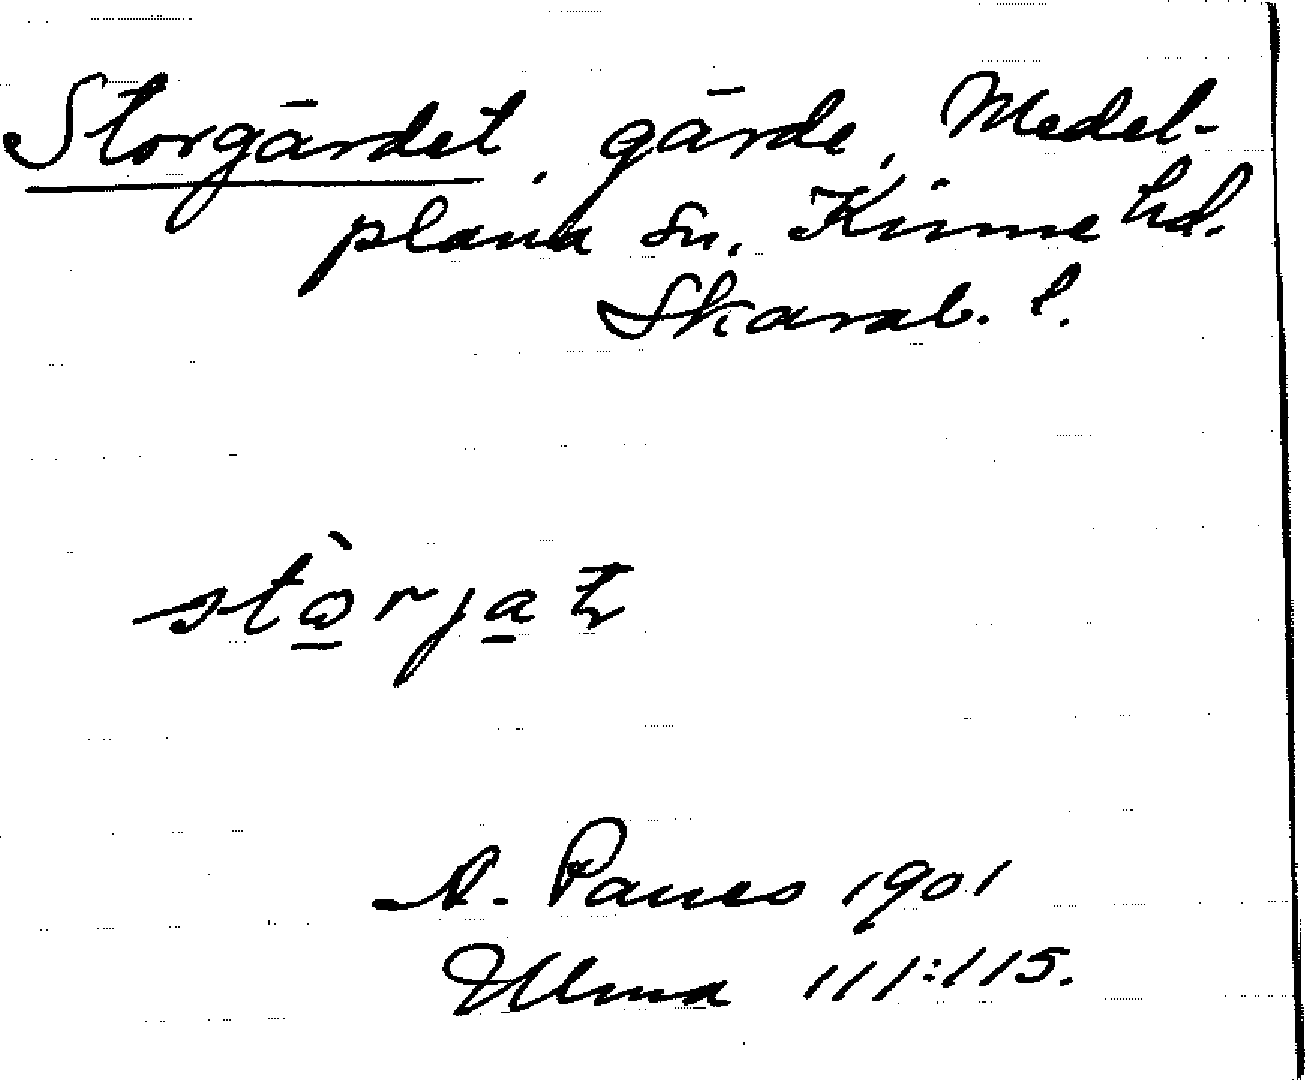 Storgärdet, gärde, Medel-
plana sn. Kinne hd.
Skarab. l.
A. Paues 1901
Ulma 111:115.